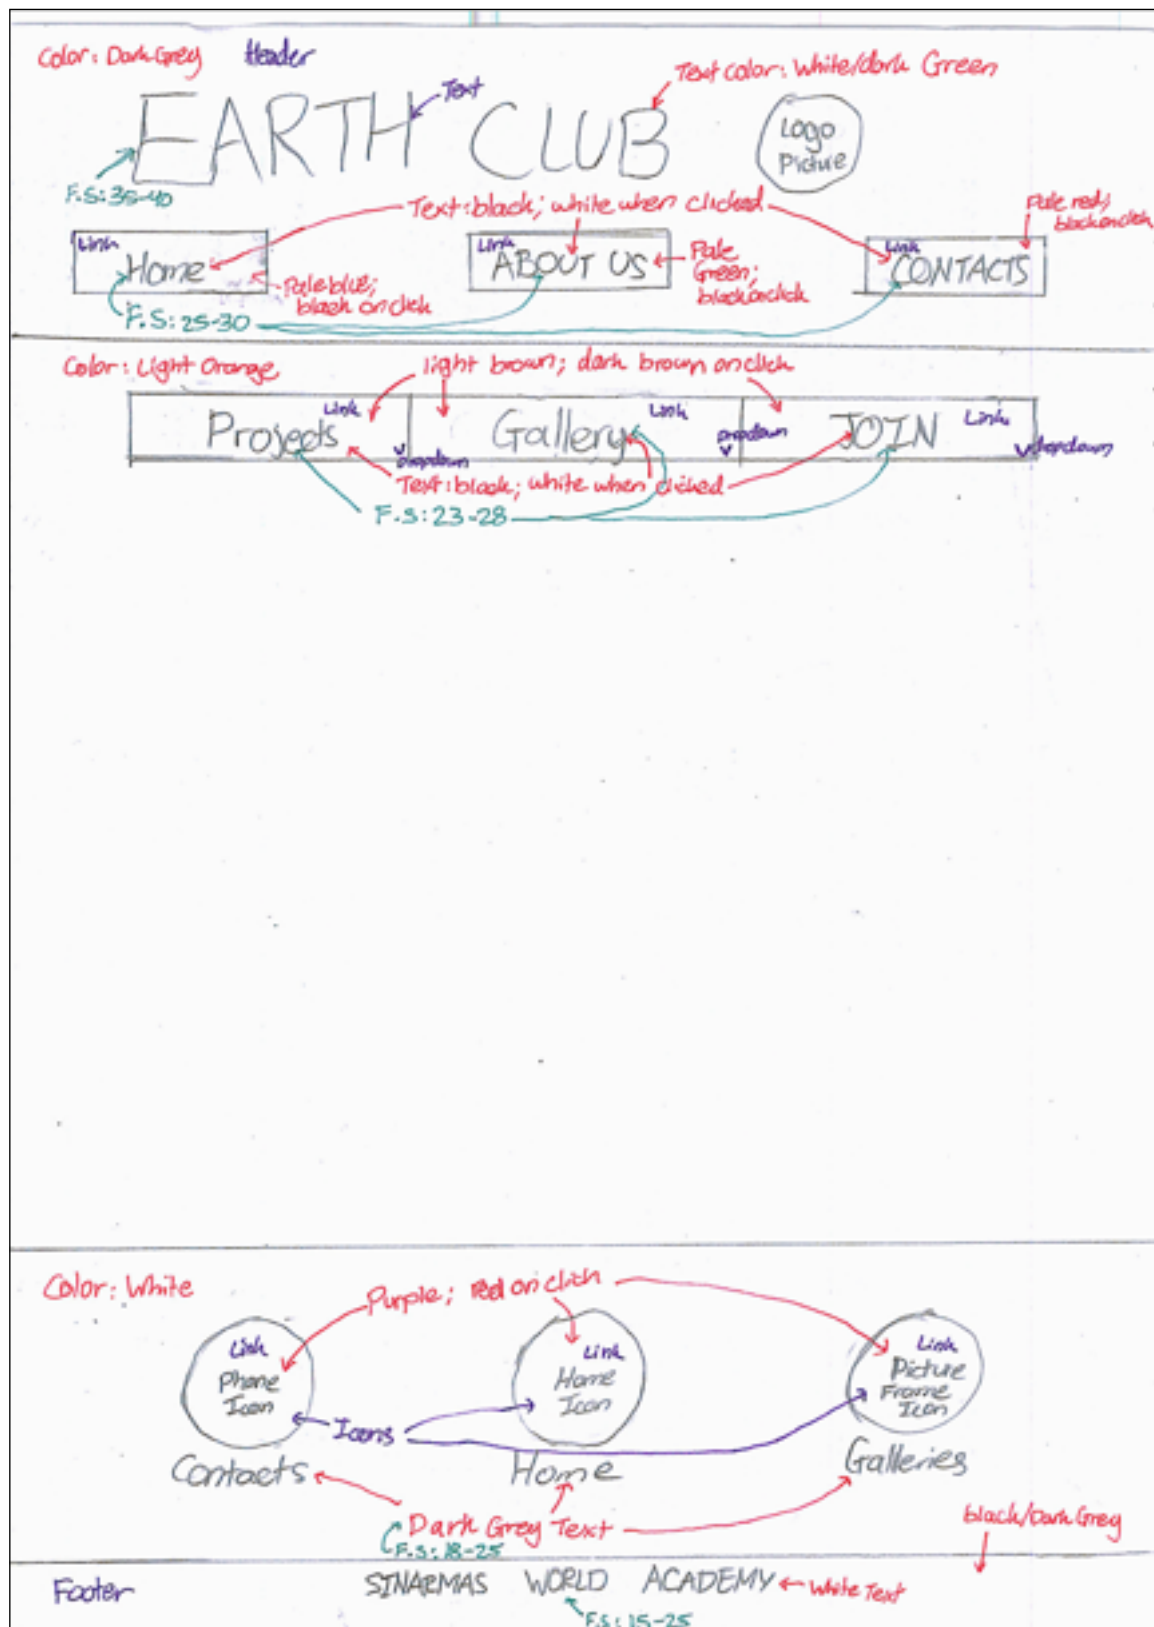 Color: Dark Grey Header
Text color: White/dark Green
Text
EARTH CLUB
Logo
Picture
F.S: 35-40
Text: black; white when clicked
Pale red;
black on click
Link
Home
Link
ABOUT US
Link
CONTACTS
Pale blue;
black on click
Pale
Green;
black on click
F.S: 25-30
Color: Light Orange
light brown; dark brown on click
Projects Link
dropdown
Gallery Link
dropdown
JOIN Link
dropdown
Text: black; white when clicked
F.S: 23-28
Color: White
Purple; red on click
Link
Phone
Icon
Link
Home
Icon
Link
Picture
Frame
Icon
Icons
Contacts
Home
Galleries
Dark Grey Text
F.S: 18-25
black/Dark Grey
Footer
SINARMAS WORLD ACADEMY
White Text
F.S: 15-25